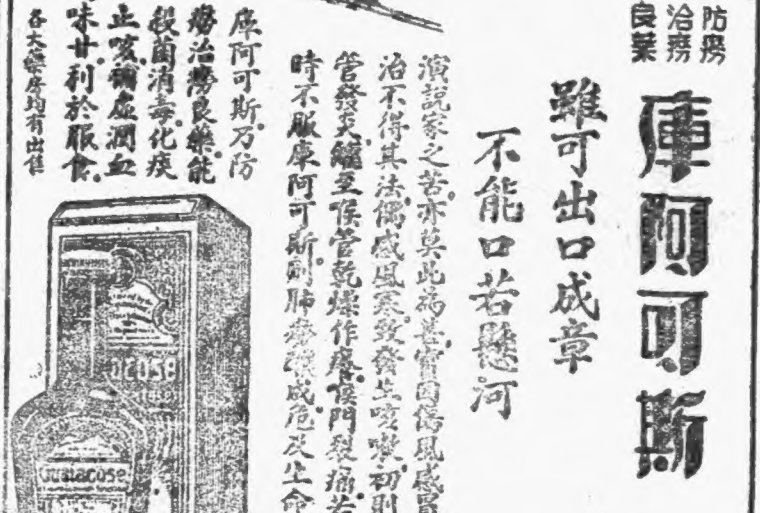 防癆
治癆
良藥
庫阿可斯
雖可出口成章
不能口若懸河
演說家之苦亦莫此為甚實因傷風感冒
治不得其法偶感風寒致發生咳嗽初則
管發炎繼至喉管乾燥作癢喉門裂痛若
時不服庫阿可斯則肺癆釀成危及生命
庫阿可斯乃防
癆治癆良藥能
殺菌消毒化痰
止咳補虛潤血
味甘利於服食
各大藥房均有出售
Guaiacose